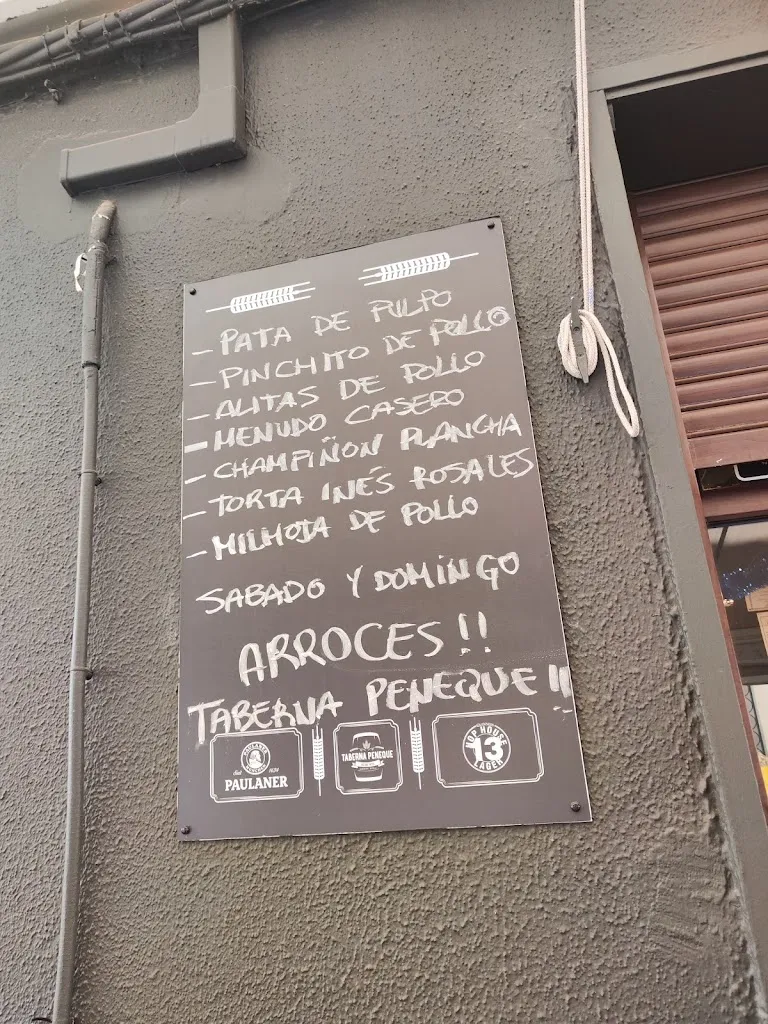 - PATA DE PULPO
- PINCHITO DE POLLO
- ALITAS DE POLLO
- MENUDO CASERO
- CHAMPIÑON PLANCHA
- TORTA INÉS ROSALES
- MILHOJA DE POLLO
SABADO Y DOMINGO
ARROCES!!
TABERNA PENEQUE!!
PAULANER
TABERNA PENEQUE
HOP HOUSE
13
LAGER